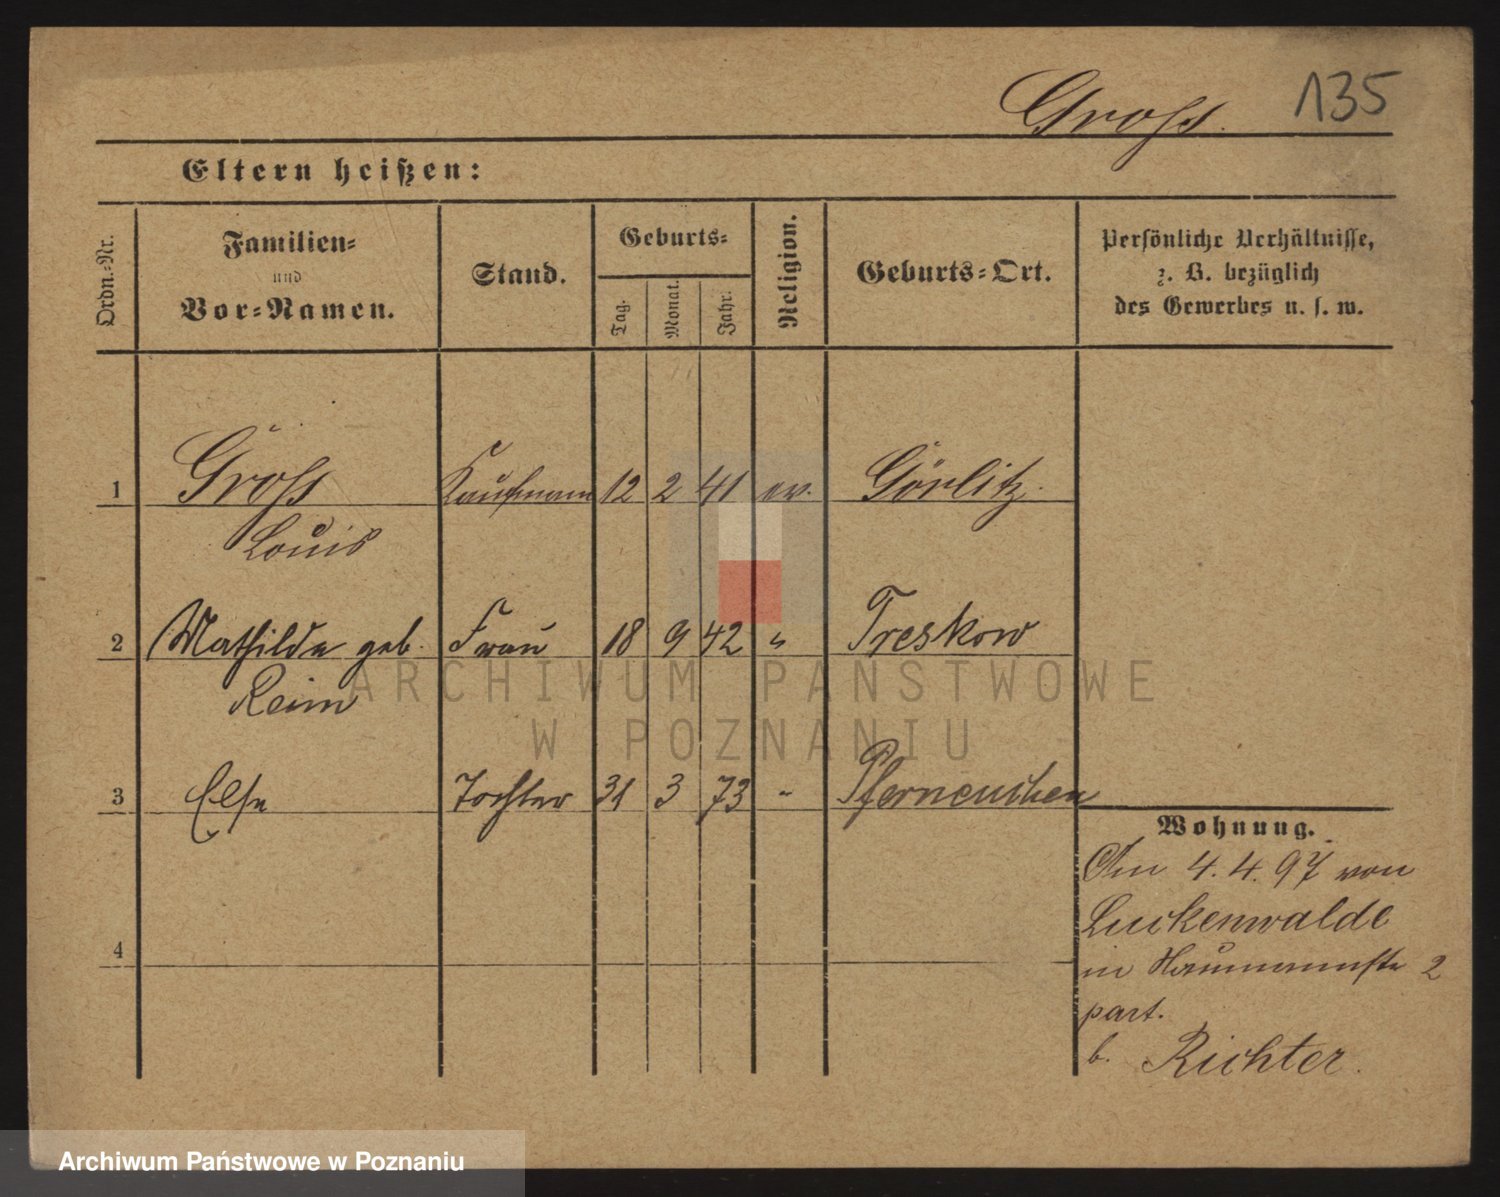 Gross. 135
Eltern heißen:
Ordn.-Nr.
Familien-
und
Vor-Namen.
Stand.
Geburts-
Tag.
Monat.
Jahr.
Religion.
Geburts-Ort.
Persönliche Verhältnisse,
z. B. bezüglich
des Gewerbes u. s. w.
1 Gross Kaufmann 12 2 41 ev. Görlitz.
Louis
2 Mathilde geb. Frau 18 9 42 " Treskow
Reim
3 Else Tochter 31 3 73 " 
4
Wohnung.
Am 4.4.97 von
Luckenwalde
in 2
part.
b. Richter.
ARCHIWUM PAŃSTWOWE
W POZNANIU
Archiwum Państwowe w Poznaniu